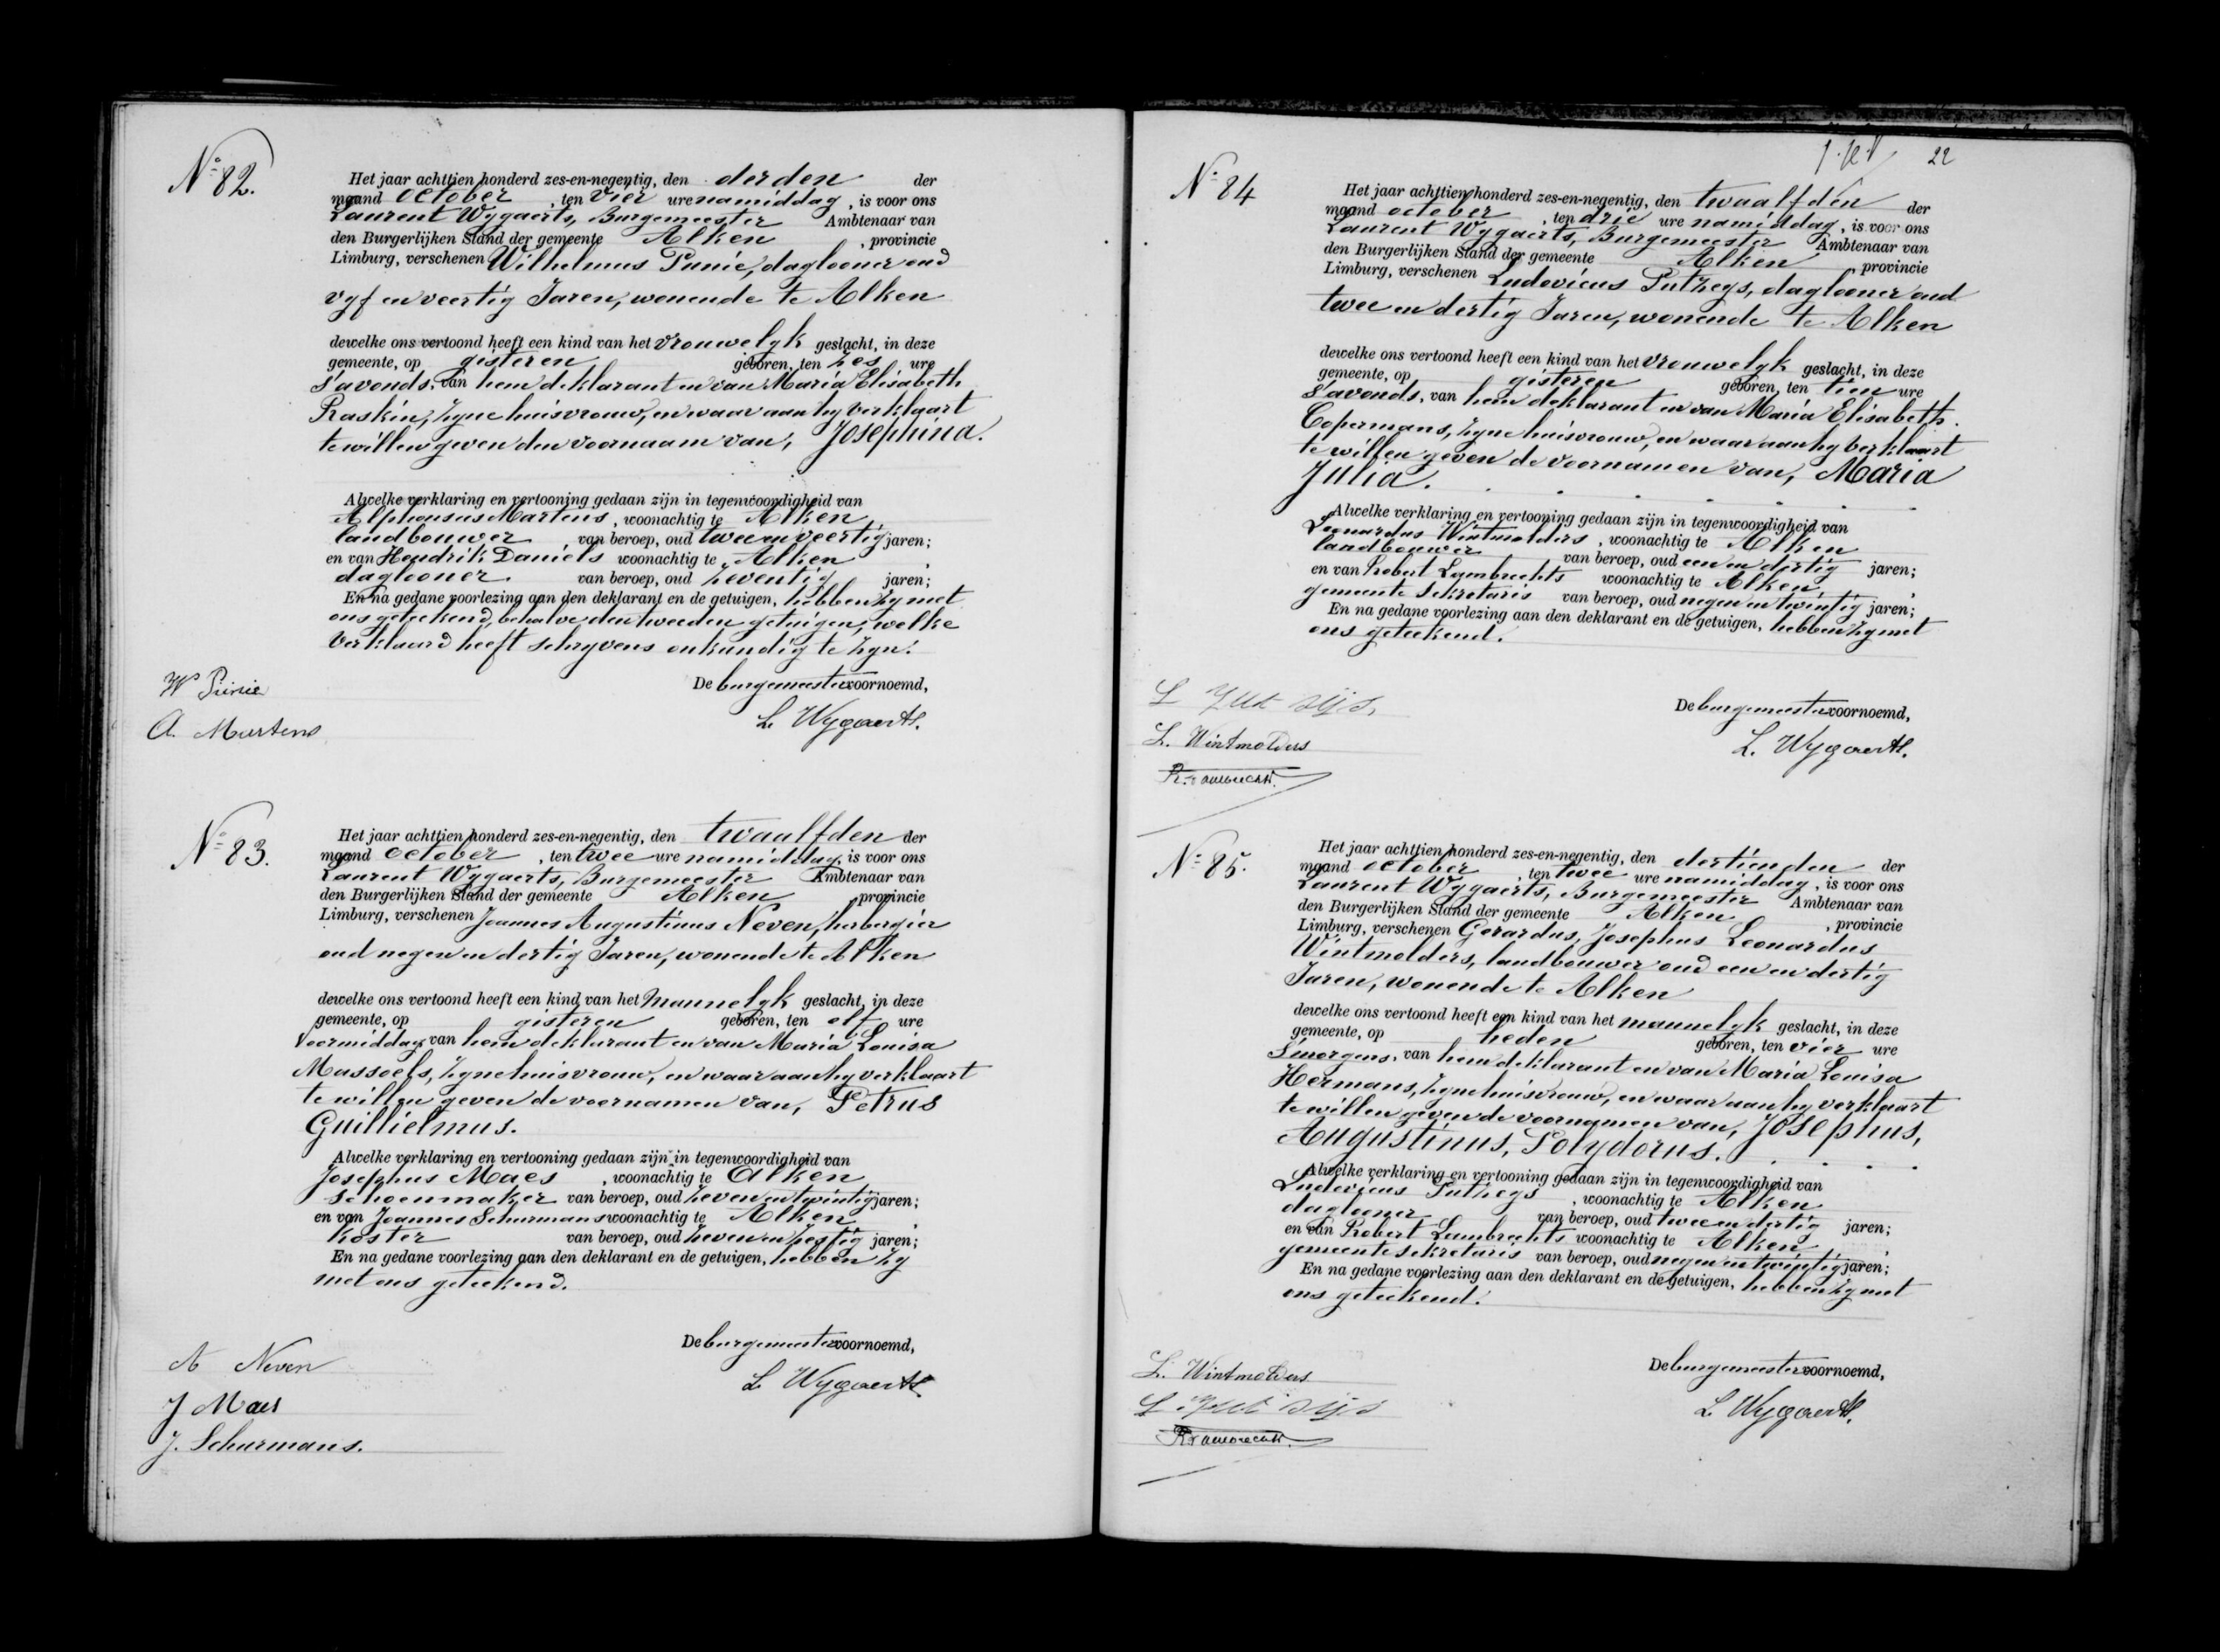 Nº 82.
Het jaar achttien honderd zes-en-negentig, den derden der
maand october, ten vier ure namiddag, is voor ons
Laurent Wygaerts, Burgemeester Ambtenaar van
den Burgerlijken Stand der gemeente Alken, provincie
Limburg, verschenen Wilhelmus Punie, daglooner oud
vyf en veertig Jaren, wonende te Alken
dewelke ons vertoond heeft een kind van het vrouwelyk geslacht, in deze
gemeente, op gisteren geboren, ten zes ure
s'avonds, van hem deklarant en van Maria Elisabeth
Raskin, zyne huisvrouw, en waar aan hy verklaart
te willen geven den voornaam van, Josephina.
Alwelke verklaring en vertooning gedaan zijn in tegenwoordigheid van
Alphonsus Martens, woonachtig te Alken,
landbouwer, van beroep, oud twee en veertig jaren;
en van Hendrik Daniels woonachtig te Alken,
daglooner van beroep, oud zeventig jaren;
En na gedane voorlezing aan den deklarant en de getuigen, hebben zy met
ons geteekend, behalve den tweeden getuigen, welke
verklaard heeft schryvens onkundig te zyn.
De burgemeester voornoemd,
W Punie
A. Martens
L. Wygaerts.
Nº 83.
Het jaar achttien honderd zes-en-negentig, den twaalfden der
maand october, ten twee ure namiddag, is voor ons
Laurent Wygaerts, Burgemeester Ambtenaar van
den Burgerlijken Stand der gemeente Alken, provincie
Limburg, verschenen Joannes Augustinus Neven, herbergier
oud negen en dertig Jaren, wonende te Alken
dewelke ons vertoond heeft een kind van het mannelyk geslacht, in deze
gemeente, op gisteren geboren, ten elf ure
voormiddag, van hem deklarant en van Maria Louisa
Massoels, zyne huisvrouw, en waar aan hy verklaart
te willen geven de voornamen van, Petrus
Guillielmus.
Alwelke verklaring en vertooning gedaan zijn in tegenwoordigheid van
Josephus Maes, woonachtig te Alken
schoenmaker van beroep, oud zeven en twintig jaren;
en van Joannes Schurmans woonachtig te Alken,
koster van beroep, oud zeven en zestig jaren;
En na gedane voorlezing aan den deklarant en de getuigen, hebben zy
met ons geteekend.
De burgemeester voornoemd,
A Neven
J Maes
J. Schurmans.
L Wygaerts
22
Nº 84
Het jaar achttien honderd zes-en-negentig, den twaalfden der
maand october, ten drie ure namiddag, is voor ons
Laurent Wygaerts, Burgemeester Ambtenaar van
den Burgerlijken Stand der gemeente Alken provincie
Limburg, verschenen Ludovicus Putzeys, daglooner oud
twee en dertig Jaren, wonende te Alken
dewelke ons vertoond heeft een kind van het vrouwelyk geslacht, in deze
gemeente, op gisteren geboren, ten tien ure
s'avonds, van hem deklarant en van Maria Elisabeth
Copermans, zyne huisvrouw, en waar aan hy verklaart
te willen geven de voornamen van, Maria
Julia.
Alwelke verklaring en vertooning gedaan zijn in tegenwoordigheid van
Leonardus Wintmolders, woonachtig te Alken
landbouwer van beroep, oud een en dertig jaren;
en van Robert Lambrechts woonachtig te Alken,
gemeente sekretaris van beroep, oud negen en twintig jaren;
En na gedane voorlezing aan den deklarant en de getuigen, hebben zy met
ons geteekend.
De burgemeester voornoemd,
L. Wintmolders
R. Lambrechts
L. Wygaerts.
Nº 85.
Het jaar achttien honderd zes-en-negentig, den dertienden der
maand october, ten twee ure namiddag, is voor ons
Laurent Wygaerts, Burgemeester Ambtenaar van
den Burgerlijken Stand der gemeente Alken, provincie
Limburg, verschenen Gerardus, Josephus Leonardus
Wintmolders, landbouwer oud een en dertig
Jaren, wonende te Alken
dewelke ons vertoond heeft een kind van het mannelyk geslacht, in deze
gemeente, op heden geboren, ten vier ure
s'morgens, van hem deklarant en van Maria Louisa
Hermans, zyne huisvrouw, en waar aan hy verklaart
te willen geven de voornamen van, Josephus,
Augustinus, Polydorus.
Alwelke verklaring en vertooning gedaan zijn in tegenwoordigheid van
Ludovicus Putzeys, woonachtig te Alken
daglooner van beroep, oud twee en dertig jaren;
en van Robert Lambrechts woonachtig te Alken,
gemeente sekretaris van beroep, oud negen en twintig jaren;
En na gedane voorlezing aan den deklarant en de getuigen, hebben zy met
ons geteekend.
De burgemeester voornoemd,
L. Wintmolders
R. Lambrechts
L. Wygaerts.